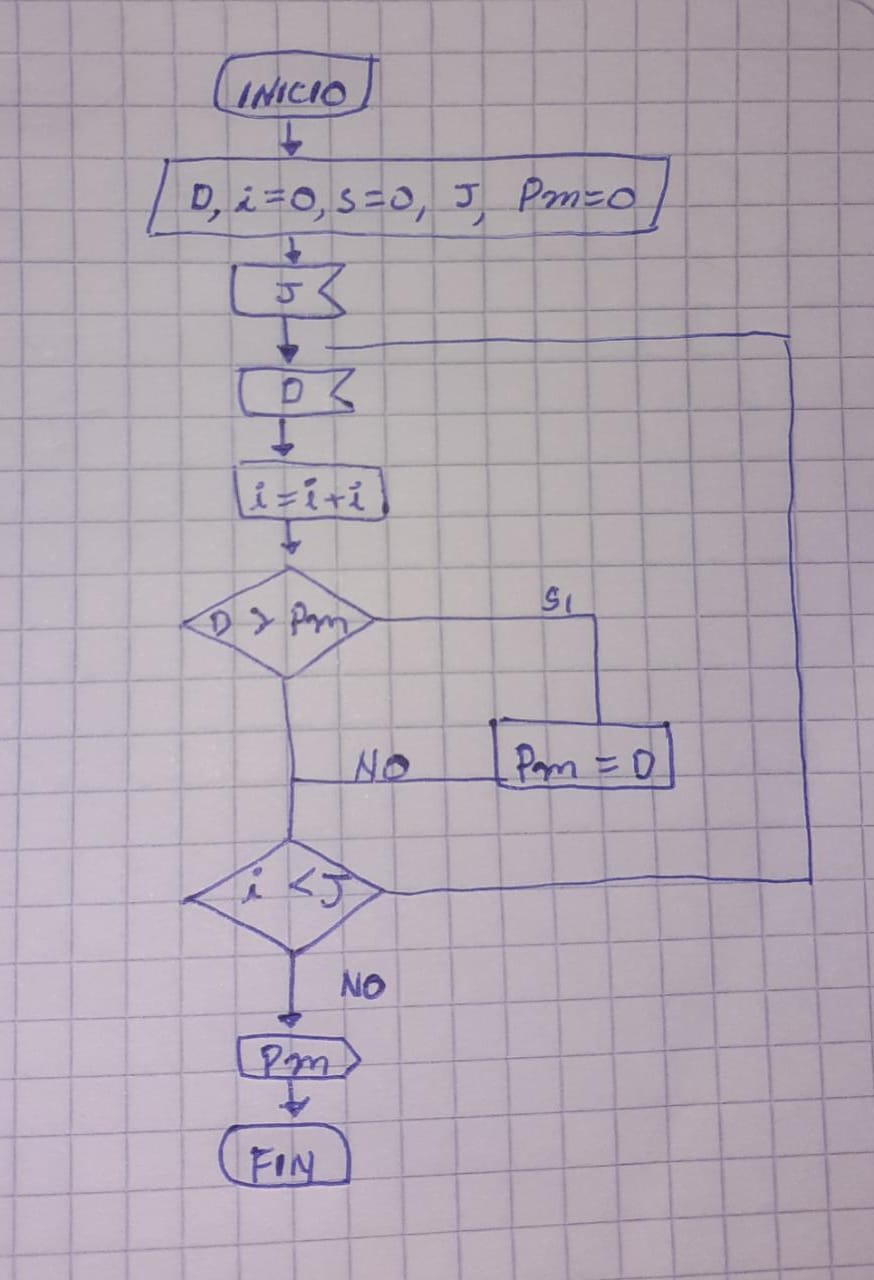 INICIO
D, i=0, s=0, J, Pm=0
J
D
i=i+i
D > Pm
SI
NO
Pm = D
i <J
NO
Pm
FIN